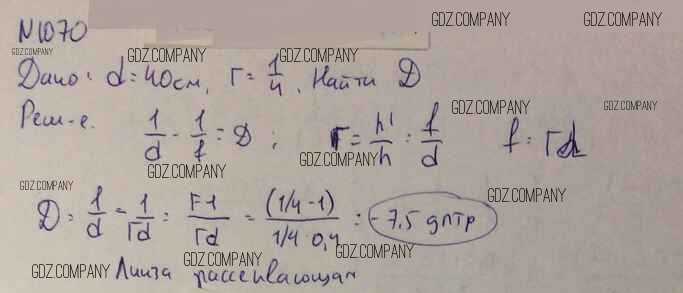 GDZ.COMPANY GDZ.COMPANY
N1070
GDZ.COMPANY GDZ.COMPANY GDZ.COMPANY
Дано: d = 40см, Г = 1/4. Найти D
GDZ.COMPANY GDZ.COMPANY
Реш-е. 1/d - 1/f = D ; Г = h'/h = f/d f = Гd
GDZ.COMPANY GDZ.COMPANY
GDZ.COMPANY GDZ.COMPANY
D = 1/d - 1/Гd = Г-1/Гd = (1/4-1)/1/4·0,4 = -7,5 дптр
GDZ.COMPANY GDZ.COMPANY
GDZ.COMPANY
Линза рассеивающая